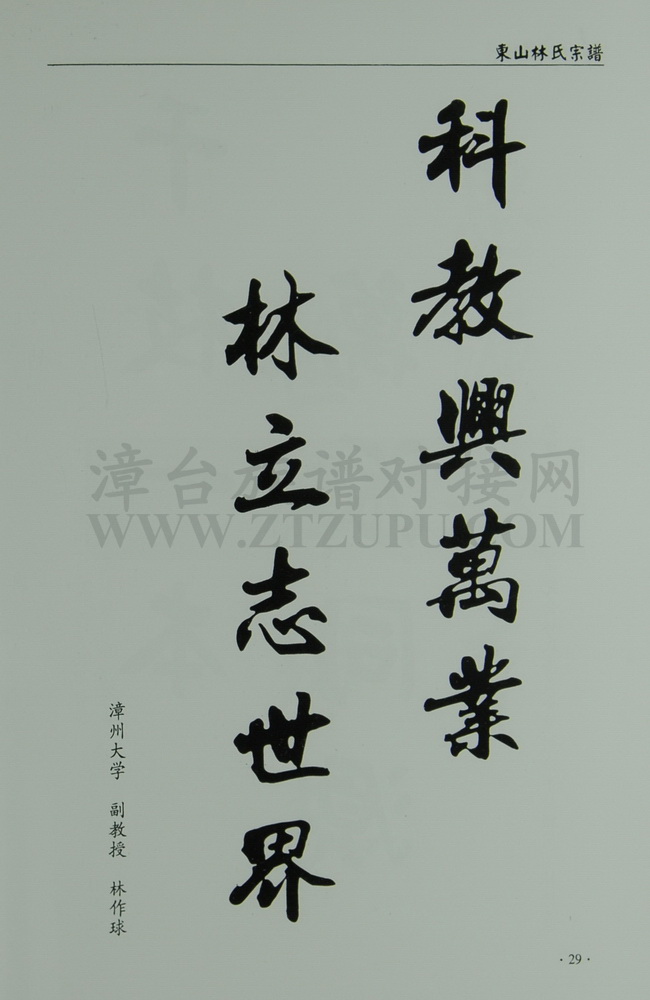 東山林氏宗譜
科教興萬業
林立志世界
漳州大学 副教授 林作球
漳台族谱对接网
WWW.ZTZUPU.COM
·29·